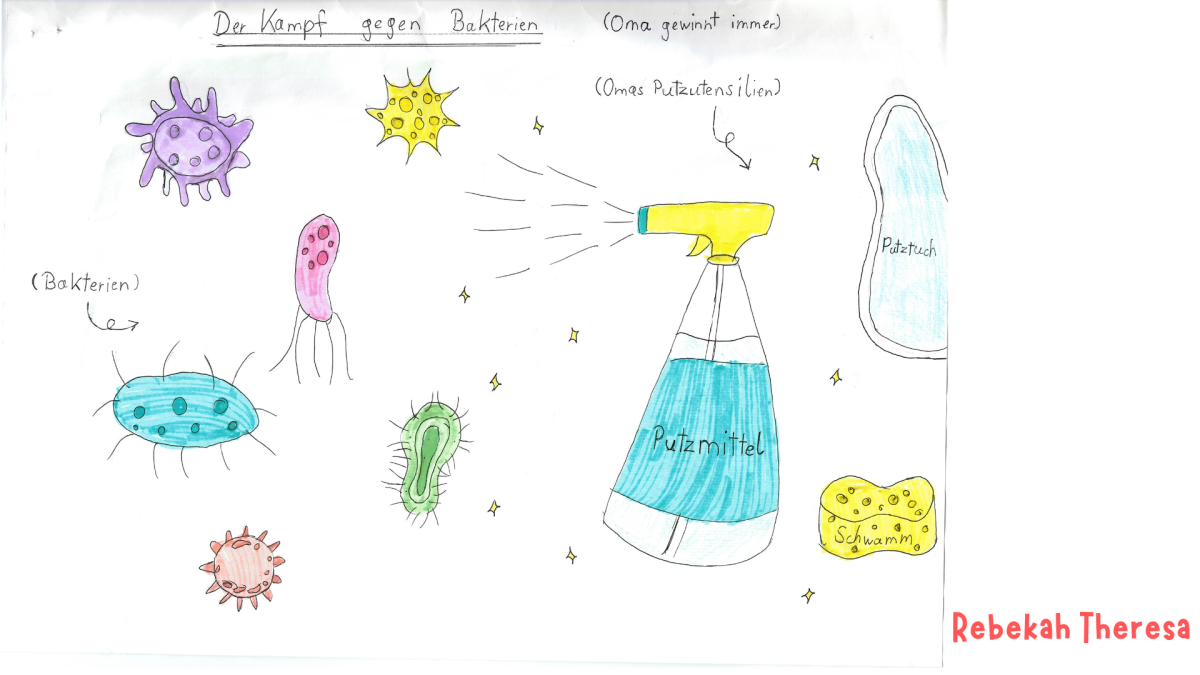 Der Kampf gegen Bakterien
(Oma gewinnt immer)
(Omas Putzutensilien)
Putztuch
(Bakterien)
Putzmittel
Schwamm
Rebekah Theresa